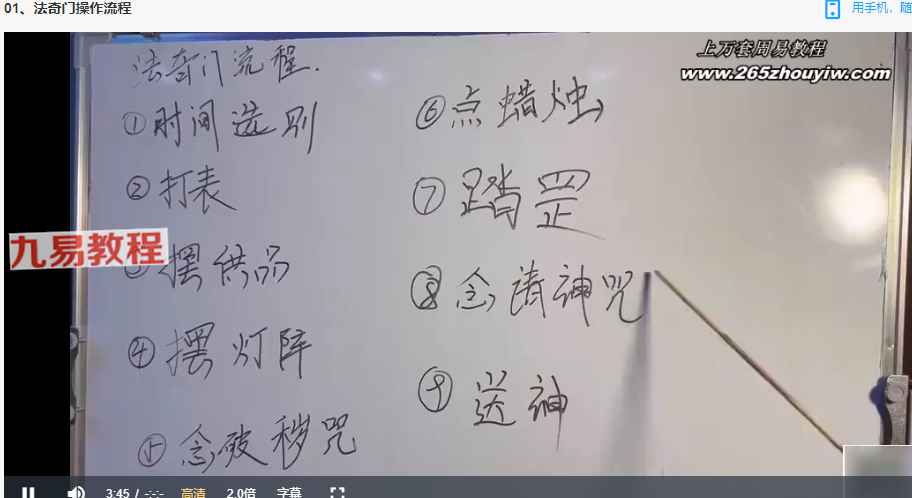 01、法奇门操作流程
用手机，随
上万套周易教程
www.265zhouyiw.com
法奇门流程.
①时间选别
②打表
九易教程
③摆供品
④摆灯阵
⑤念破秽咒
⑥点蜡烛
⑦踏罡
⑧念请神咒
⑨送神
3:45 / -:-
高清
2.0倍
字幕